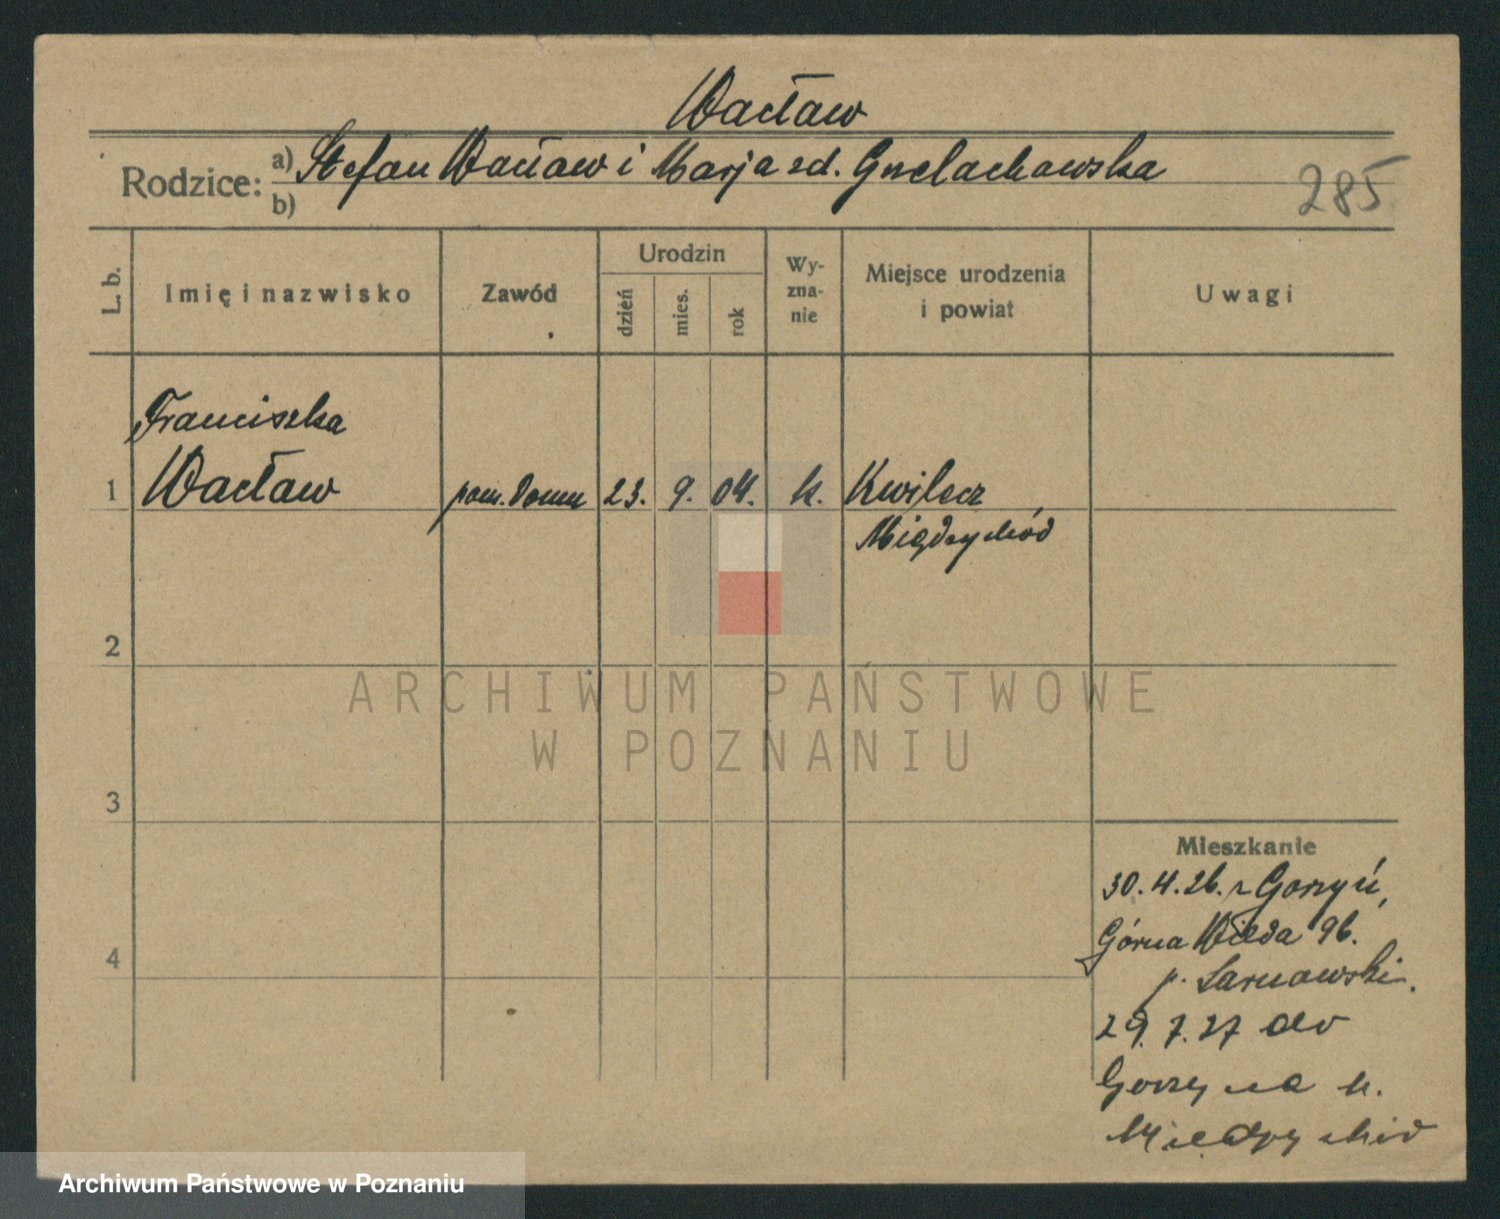 Wacław
Rodzice: a) Stefan Wacław i Marja zd. Gnelachowska
b)
285
L. b.
Imię i nazwisko
Zawód
Urodzin
dzień
mies.
rok
Wy-
zna-
nie
Miejsce urodzenia
i powiat
Uwagi
Franciszka
1 Wacław pom. domu 23. 9. 04. k. Kwilcz
Międzychód
2
ARCHIWUM PAŃSTWOWE
W POZNANIU
3
Mieszkanie
30.4.26. z Gorzyń,
Górna Wilda 96.
4
p. Sarnowski.
29.7.27 do
Gorzynia k.
Międzychód
Archiwum Państwowe w Poznaniu